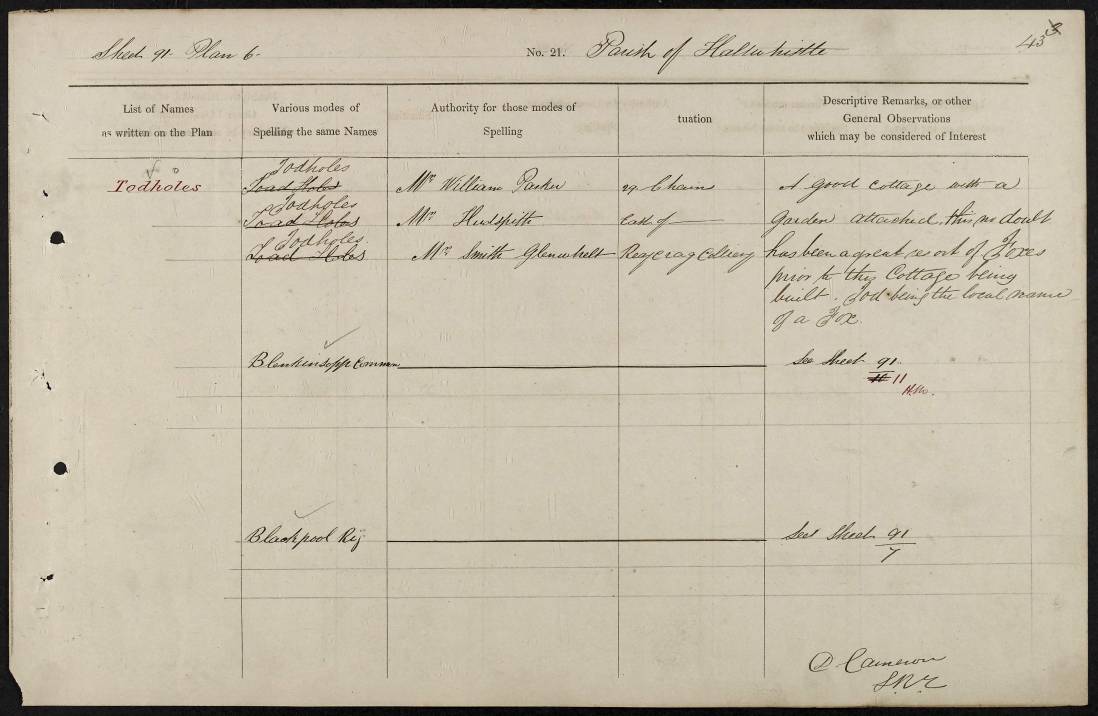 Sheet 91 Plan 6.
No. 21.
Parish of Haltwhistle
43
List of Names
as written on the Plan
Various modes of
Spelling the same Names
Authority for those modes of
Spelling
tuation
Descriptive Remarks, or other
General Observations
which may be considered of Interest
Todholes
Todholes
Toad Holes
Todholes
Toad Holes
Todholes.
Toad Holes
Mr William Parker
Mr Hudspith
Mr Smith Glenwhelt
29 Chain
East of
Reaycrag Colliery
A good cottage with a
garden attached, this no doubt
has been a great resort of Foxes
prior to this Cottage being
built. Tod being the local name
of a Fox.
Blenkinsopp Common
See Sheet 91
11 11
Blackpool Rig
See Sheet 91
7
D Cameron